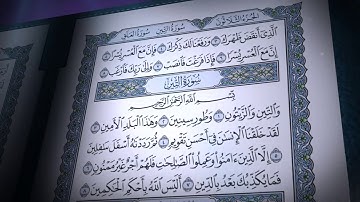 الجزء الثلاثون
سورة التين
سورة العلق
الَّذِي أَنقَضَ ظَهْرَكَ ٣ وَرَفَعْنَا لَكَ ذِكْرَكَ ٤ فَإِنَّ مَعَ الْعُسْرِ يُسْرًا ٥
إِنَّ مَعَ الْعُسْرِ يُسْرًا ٦ فَإِذَا فَرَغْتَ فَانصَبْ ٧ وَإِلَىٰ رَبِّكَ فَارْغَب ٨
سُورَةُ التِّينِ
بِسْمِ اللَّهِ الرَّحْمَٰنِ الرَّحِيمِ
وَالتِّينِ وَالزَّيْتُونِ ١ وَطُورِ سِينِينَ ٢ وَهَٰذَا الْبَلَدِ الْأَمِينِ ٣
لَقَدْ خَلَقْنَا الْإِنسَانَ فِي أَحْسَنِ تَقْوِيمٍ ٤ ثُمَّ رَدَدْنَاهُ أَسْفَلَ سَافِلِينَ ٥
إِلَّا الَّذِينَ آمَنُوا وَعَمِلُوا الصَّالِحَاتِ فَلَهُمْ أَجْرٌ غَيْرُ مَمْنُونٍ ٦
فَمَا يُكَذِّبُكَ بَعْدُ بِالدِّينِ ٧ أَلَيْسَ اللَّهُ بِأَحْكَمِ الْحَاكِمِينَ ٨